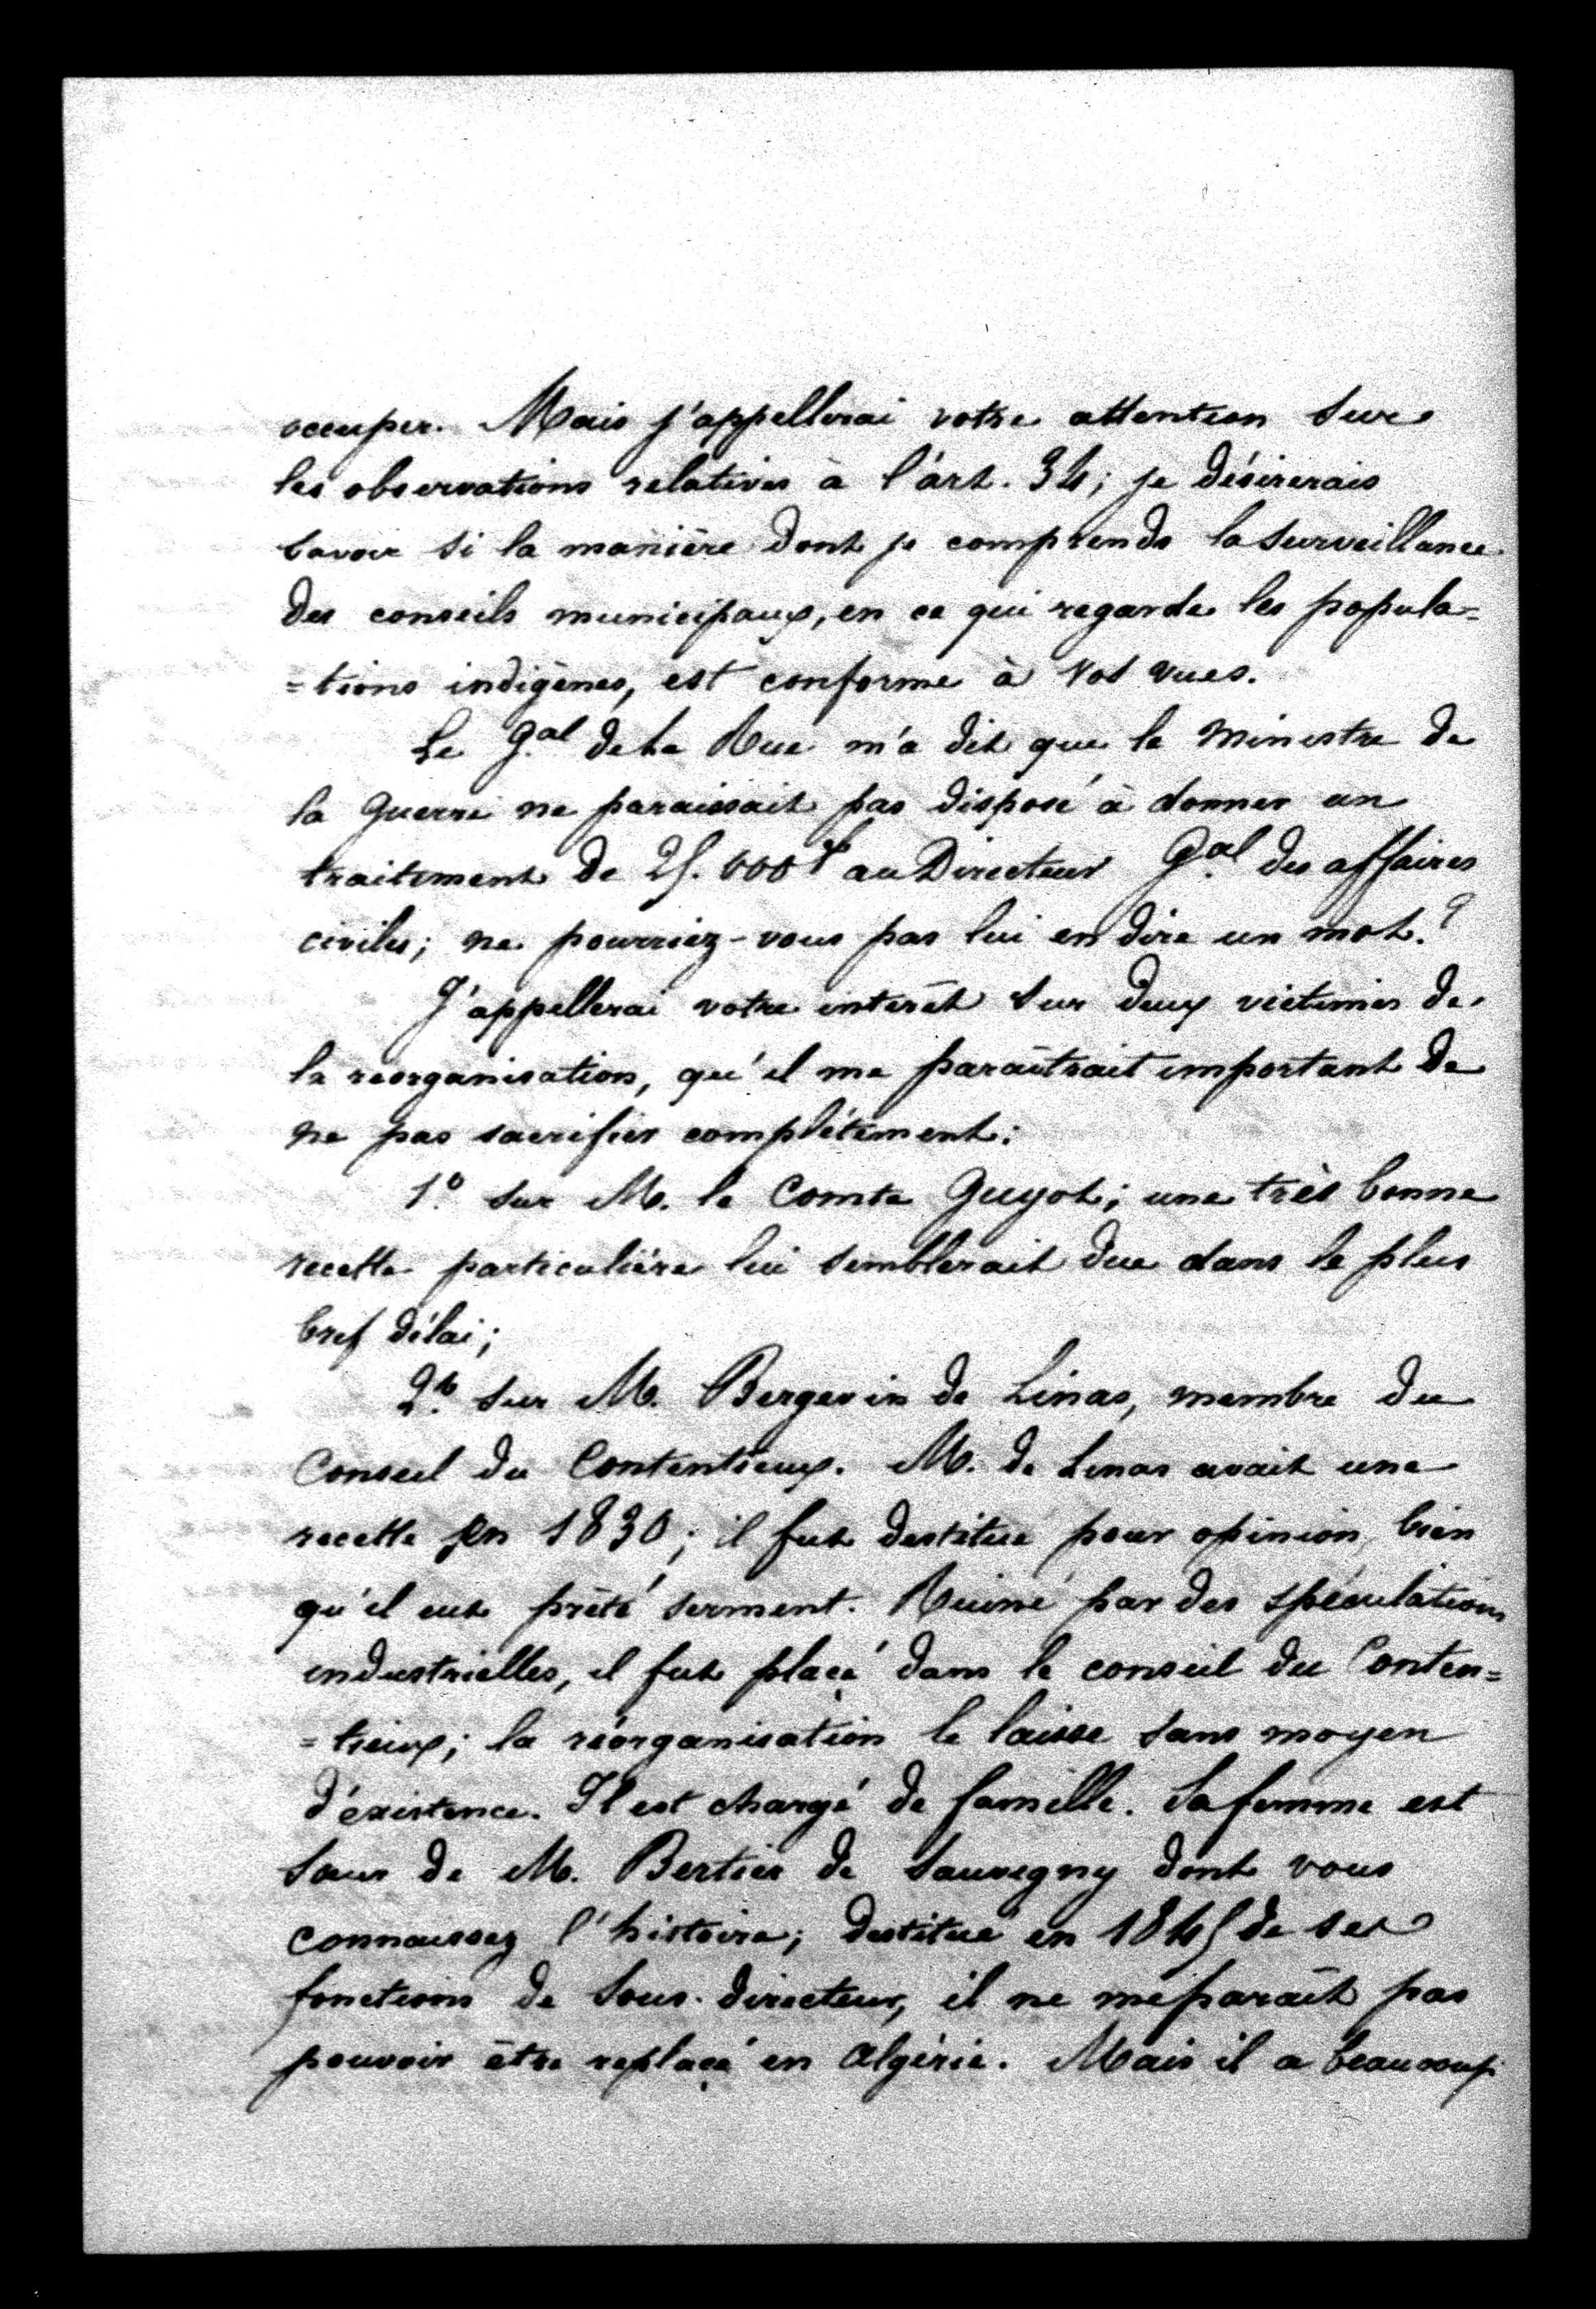 occuper. Mais j'appellerai votre attention sur
les observations relatives à l'art. 34; je désirerais
savoir si la manière dont je comprends la surveillance
des conseils municipaux, en ce qui regarde les popula=
=tions indigènes, est conforme à vos vues.
Le Gal de La Rue m'a dit que le Ministre de
la Guerre ne paraissait pas disposé à donner un
traitement de 25.000f au Directeur Gal des affaires
civiles; ne pourriez-vous pas lui en dire un mot?
J'appellerai votre intérêt sur deux victimes de
la réorganisation, qu'il me paraîtrait important de
ne pas sacrifier complétement:
1º sur M. le Comte Guyot; une très bonne
recette particulière lui semblerait due dans le plus
bref délai;
2º sur M. Bergevin de Linas, membre du
Conseil du Contentieux. M. de Linas avait une
recette en 1830; il fut destitué pour opinion, bien
qu'il eut prêté serment. Ruiné par des spéculations
industrielles, il fut placé dans le conseil du Conten=
=tieux; la réorganisation le laisse sans moyen
d'existence. Il est chargé de famille. Sa femme est
sœur de M. Bertier de Sauvigny dont vous
connaissez l'histoire; destitué en 1845 de ses
fonctions de Sous-directeur, il ne me paraît pas
pouvoir être replacé en Algérie. Mais il a beaucoup